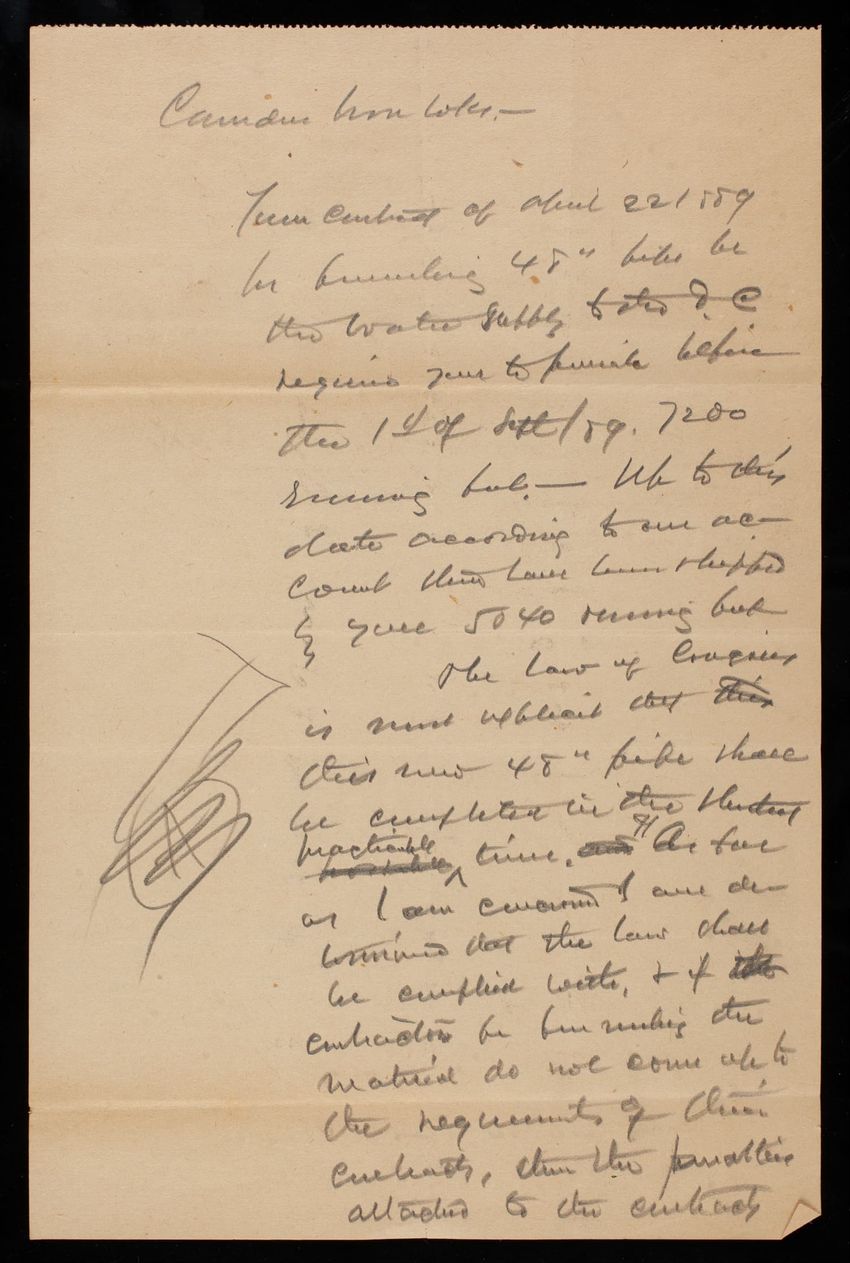 Camden Iron Wks.—
Your contract of April 22 1889
for furnishing 48" pipe for
the Water Supply to the D.C
requires you to furnish before
the 1st of Sept /89. 7200
running feet.— Up to this
date according to our ac-
count there have been shipped
by you 5040 running feet
The law of Congress
is most explicit that this
this new 48" pipe shall
be completed in the shortest
practicable
possible time, and As far
as I am concerned I am de-
termined that the law shall
be complied with, & if the
contractors for furnishing the
material do not come up to
the requirements of their
contracts, then the penalties
attached to the contracts